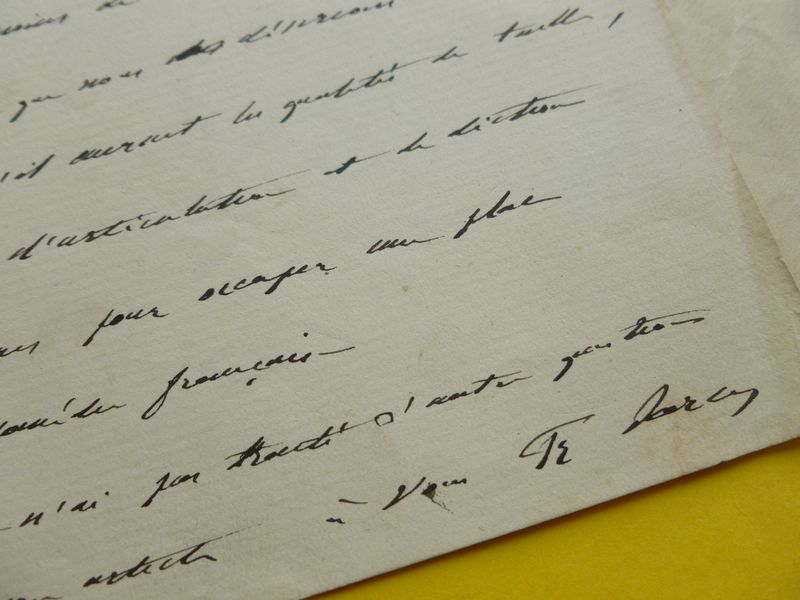 de
que nous des désirions
il auront les qualités de taille,
d'articulation et de diction
pour occuper une place
comédie française
n'ai pas traité d'autre question
article
à Vous Fr Sarcey